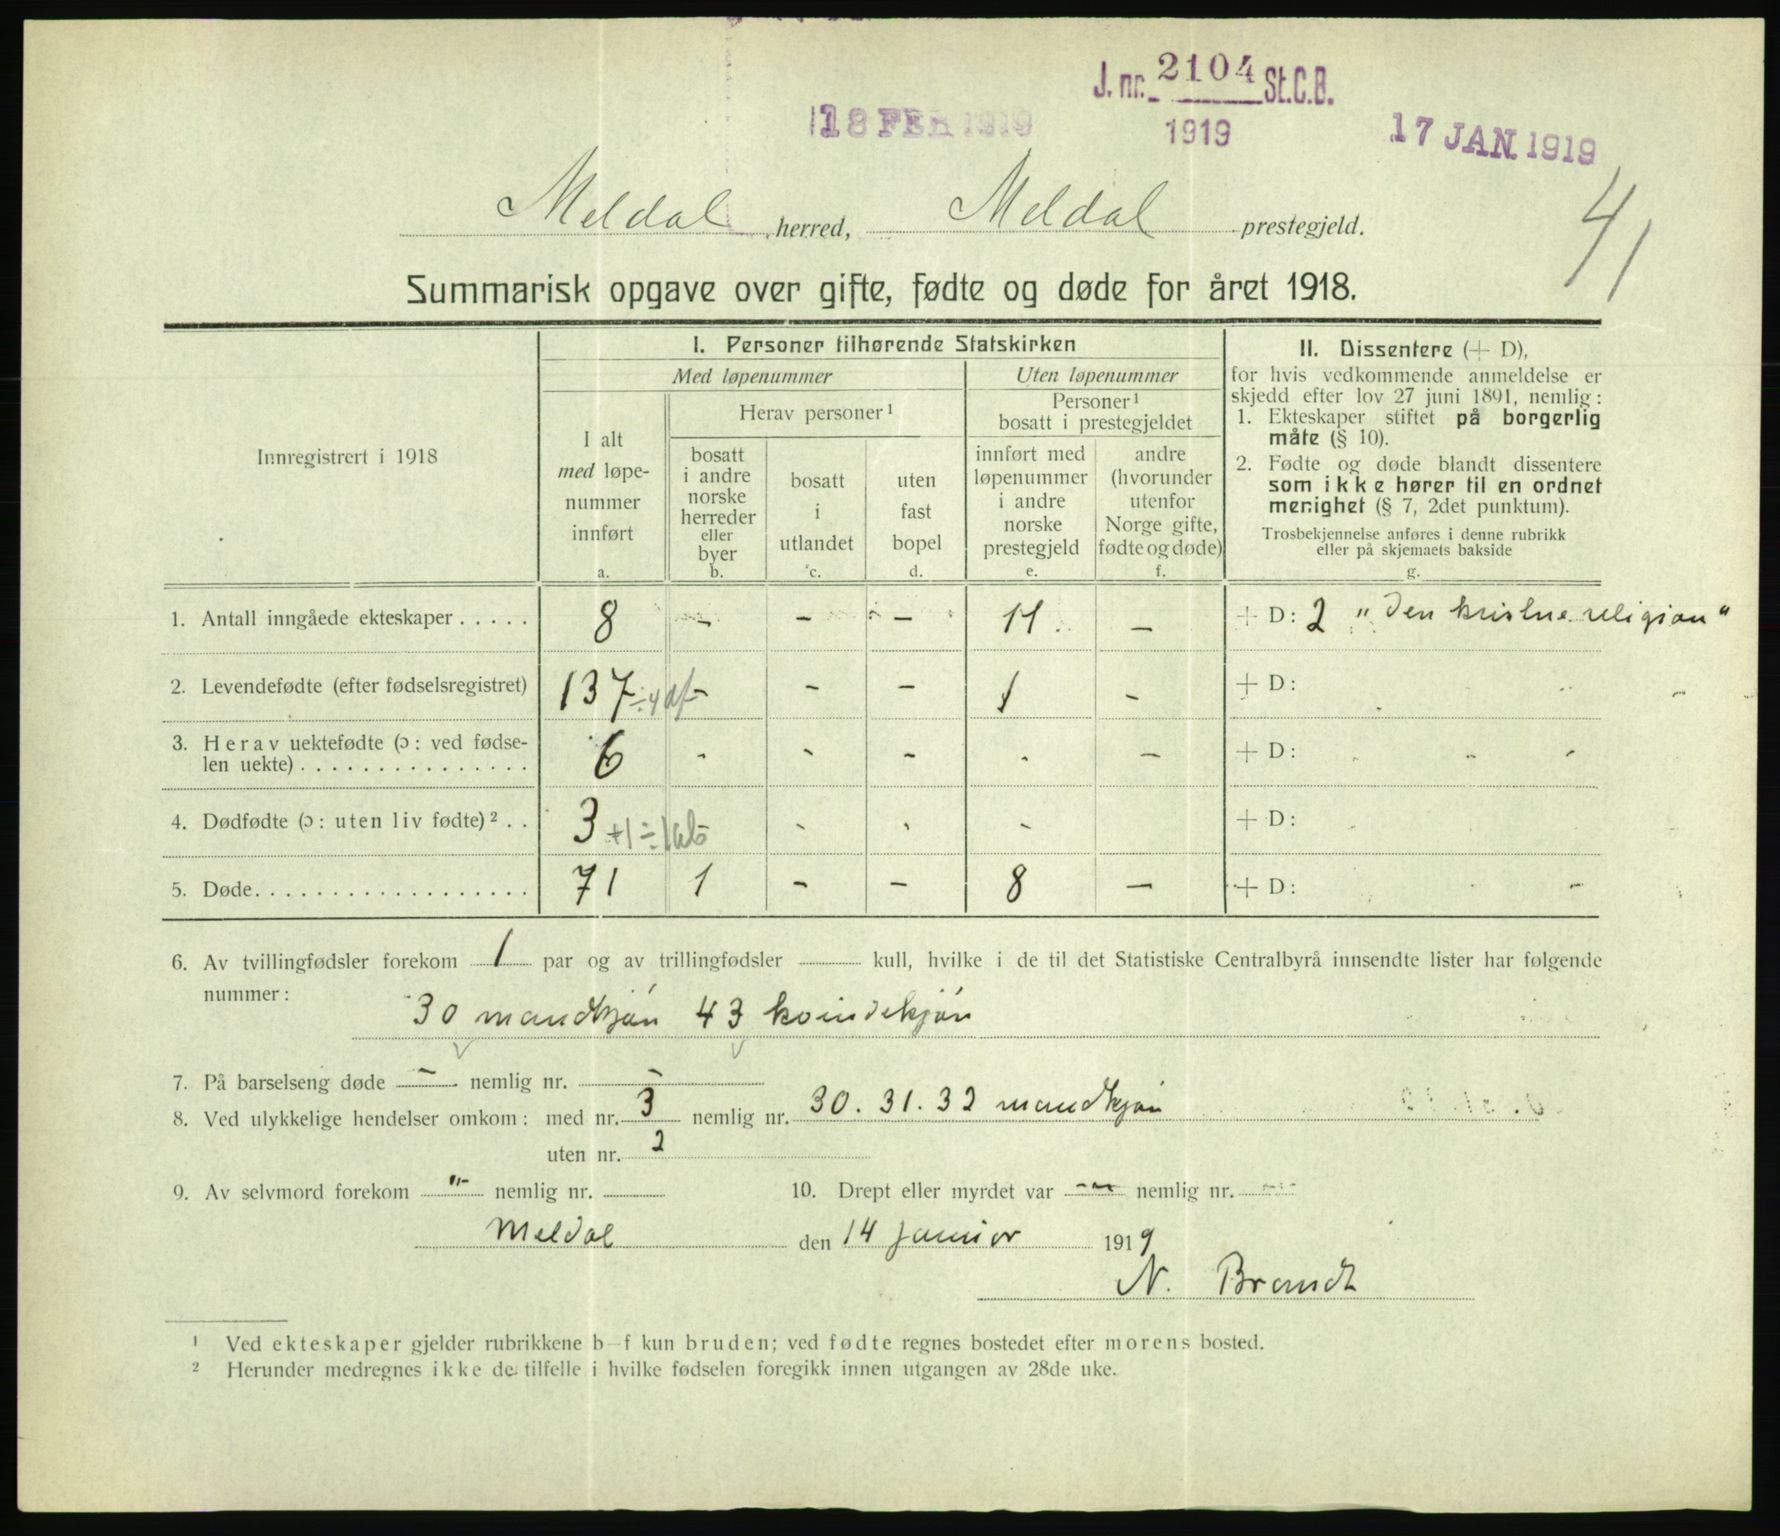 J. nr. 2104 St.C.B.
1919
18 FEB 1919
17 JAN. 1919
41
Meldal herred, Meldal prestegjeld.
Summarisk opgave over gifte, fødte og døde for året 1918.
Innregistrert i 1918
I. Personer tilhørende Statskirken
Med løpenummer
Uten løpenummer
I alt
med løpe-
nummer
innført
a.
Herav personer ¹
bosatt
i andre
norske
herreder
eller
byer
b.
bosatt
i
utlandet
c.
uten
fast
bopel
d.
Personer ¹
bosatt i prestegjeldet
innført med
løpenummer
i andre
norske
prestegjeld
e.
andre
(hvorunder
utenfor
Norge gifte,
fødte og døde)
f.
II. Dissentere (+ D),
for hvis vedkommende anmeldelse er
skjedd efter lov 27 juni 1891, nemlig:
1. Ekteskaper stiftet på borgerlig
måte (§ 10).
2. Fødte og døde blandt dissentere
som ikke hører til en ordnet
menighet (§ 7, 2det punktum).
Trosbekjennelse anføres i denne rubrikk
eller på skjemaets bakside
g.
1. Antall inngåede ekteskaper . . . . . 8 - - - 11 - + D: 2 "Den kristne religion"
2. Levendefødte (efter fødselsregistret) 137 ÷4 af - - - 1 - + D:
3. Herav uektefødte (ɔ: ved fødse-
len uekte) . . . . . . . . . . . . . . . 6 - - - - - + D: - -
4. Dødfødte (ɔ: uten liv fødte) ² . . 3 +1 ÷ - - - + D:
5. Døde. . . . . . . . . . . . . . . . . . 71 1 - - 8 - + D: -
6. Av tvillingfødsler forekom 1 par og av trillingfødsler kull, hvilke i de til det Statistiske Centralbyrå innsendte lister har følgende
nummer:
30 mandkjön 43 kvindekjön
7. På barselseng døde - nemlig nr. -
8. Ved ulykkelige hendelser omkom: med nr. 3 nemlig nr. 30. 31. 32 mandkjön
uten nr. 2
9. Av selvmord forekom "- nemlig nr.
10. Drept eller myrdet var --- nemlig nr. ---
Meldal den 14 januar 1919
N. Brandt
¹ Ved ekteskaper gjelder rubrikkene b–f kun bruden; ved fødte regnes bostedet efter morens bosted.
² Herunder medregnes ikke de tilfelle i hvilke fødselen foregikk innen utgangen av 28de uke.